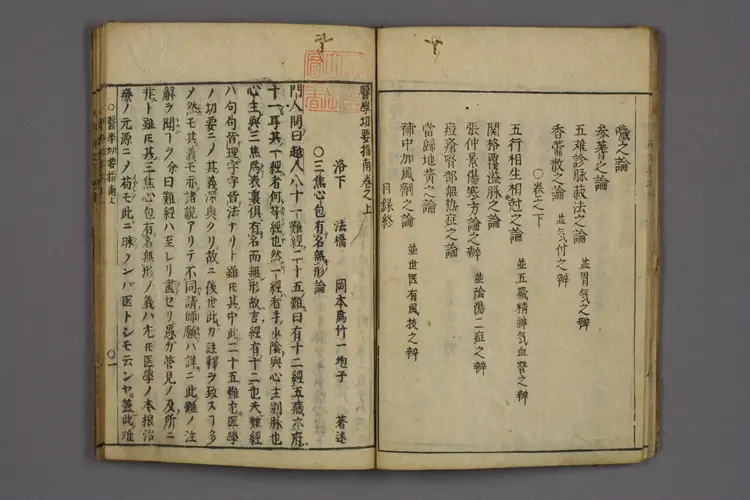 噦之論
参耆之論
五难診脉菽法之論 並胃気之辨
香薷散之論 並気付之辨
〇卷之下
五行相生相尅之論 並五蔵精神気血營之辨
関格覆溢脉之論
張仲景傷寒方論之辨 並陰陽二症之辨
痘瘡腎部無热症之論
當歸地黄之論
補中加風劑之論 並世医有風技之辨
目録終
醫學切要指南卷之上
洛下 法橋 岡本爲竹一抱子 著述
〇三焦心包有名無形論
門人問曰越人八十一難經二十五難曰有十二經五蔵六府
十一耳其一經者何等經也然一經者手少陰與心主別脉也
心主與三焦爲表裏俱有名而無形故言經有十二也夫難經
ハ句句皆理字字皆法ナリト雖モ其中此二十五難尤医學
ノ切要ニメ其義深奥タリ故ニ後世此カ註釋ヲ致ス者多
ノ然モ其義モ亦諸説アリテ不同請師願ハ詳ニ此難ノ注
解ヲ聞ラヲ余曰難經ハ至レリ盡セリ愚カ管見ノ及所ニ
非ト雖モ其三焦心包有名無形ノ義ハ尤モ医學ノ本根治
療ノ元源ニメ苟モ此ニ昧ノンバ医トシモ云ンヤ蓋此难
〇醫學切要指南上
〇一